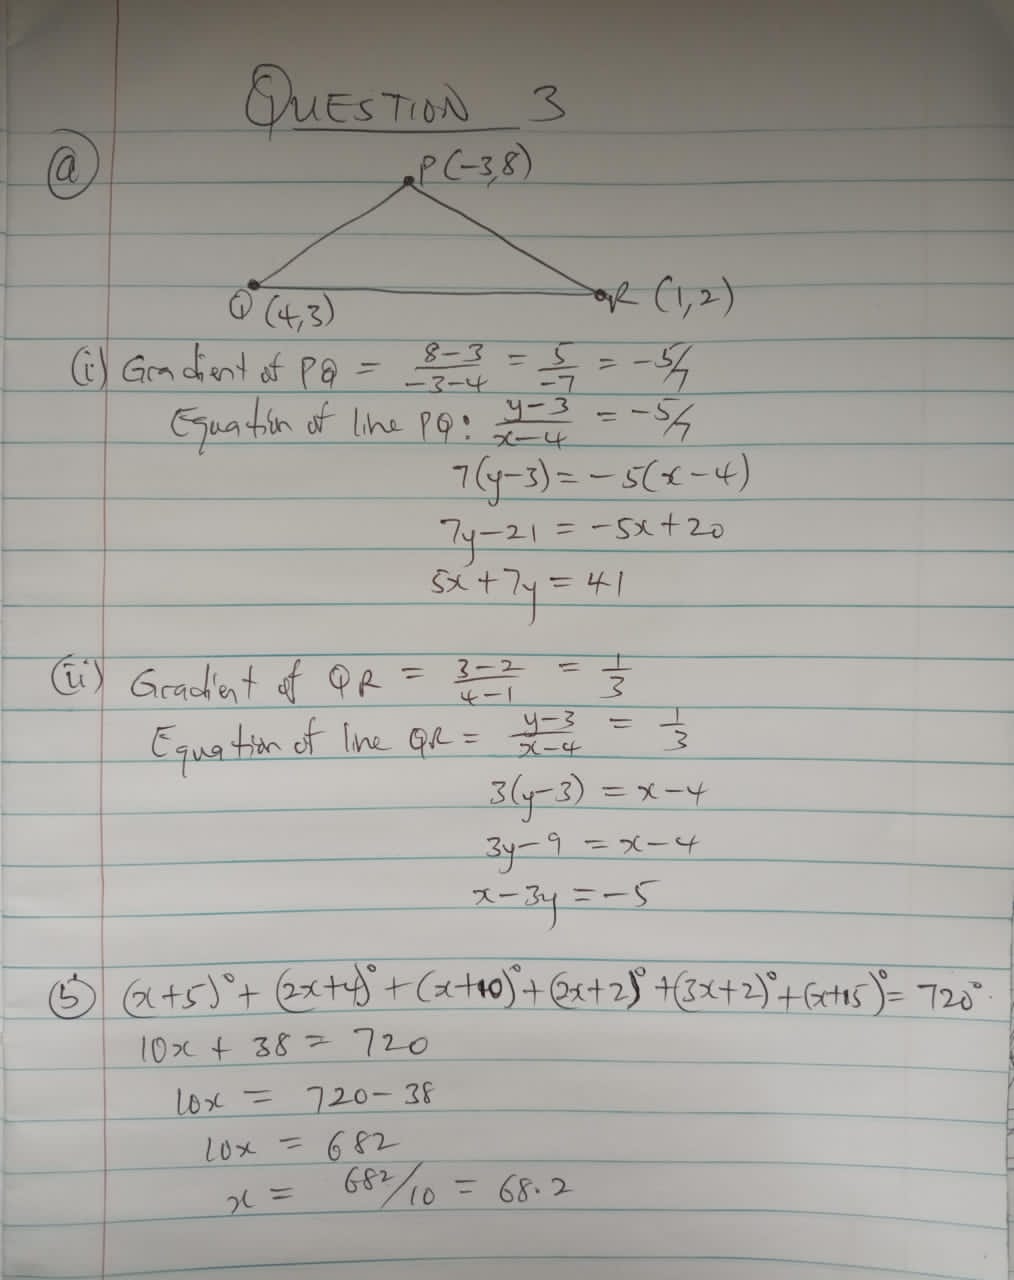 QUESTION 3
(a)
P(-3,8)
Q (4,3)
R (1,2)
(i) Gradient of PQ = \frac{8-3}{-3-4} = \frac{5}{-7} = -5/7
Equation of line PQ: \frac{y-3}{x-4} = -5/7
7(y-3) = -5(x-4)
7y-21 = -5x+20
5x+7y = 41
(ii) Gradient of QR = \frac{3-2}{4-1} = \frac{1}{3}
Equation of line QR = \frac{y-3}{x-4} = \frac{1}{3}
3(y-3) = x-4
3y-9 = x-4
x-3y = -5
(b) (x+5)° + (2x+4)° + (x+10)° + (2x+2)° + (3x+2)° + (x+15)° = 720°.
10x + 38 = 720
10x = 720-38
10x = 682
x = 682/10 = 68.2